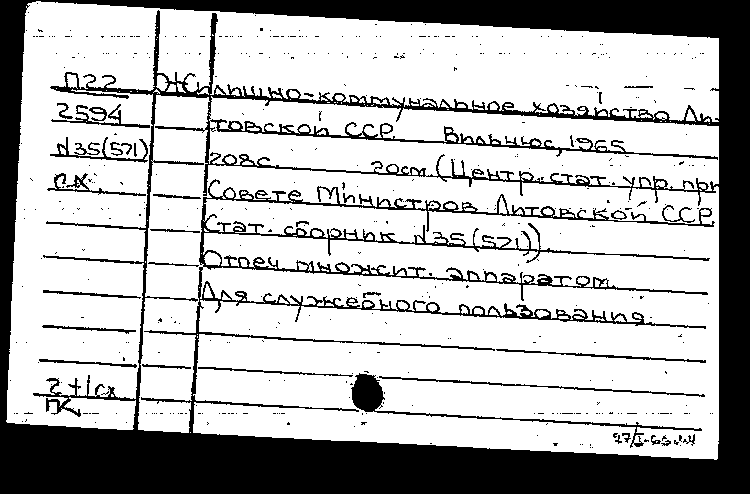 П22 Жилищно-коммунальное хозяйство Ли-
2594 товской ССР. Вильнюс, 1965
N35(571) 208с. 20см (Центр. стат. упр. при
сх. Совете Министров Литовской ССР.
Стат. сборник N35(571)).
Отпеч. множит. аппаратом.
Для служебного пользования.
2+1сх
ПК